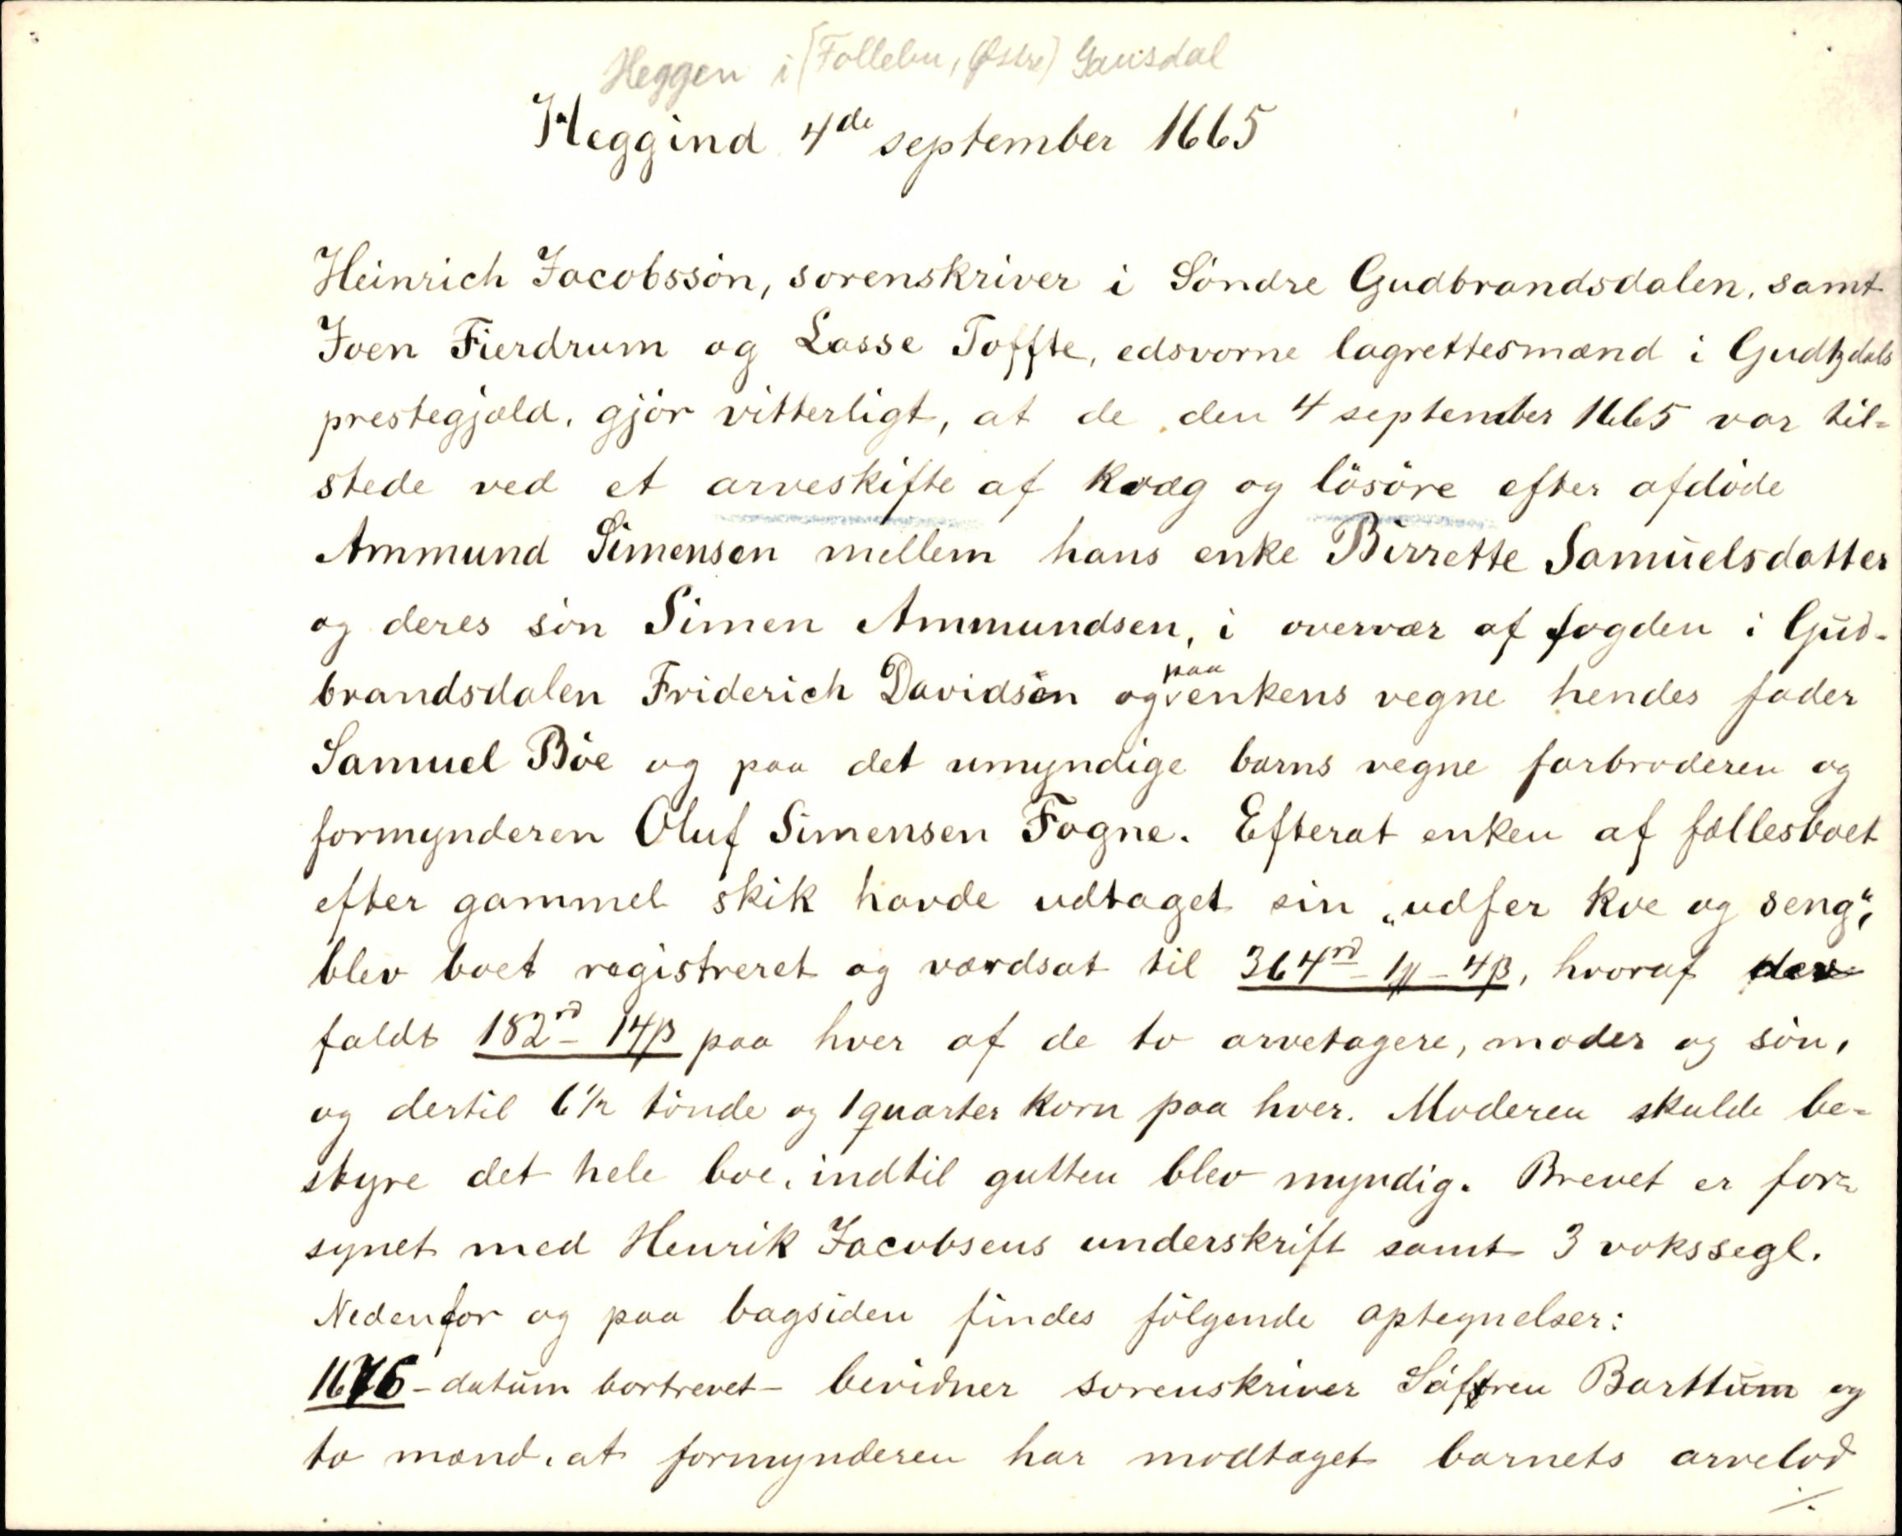 Heggen i (Follebu, Østre) Gausdal
Heggind 4de september 1665
Heinrich Jacobssön, sorenskriver i Söndre Gudbrandsdalen, samt
Joen Fierdrum og Lasse Toffte, edsvorne lagrettesmænd i Gudtzdals
prestegjæld, gjör vitterligt, at de den 4 september 1665 var til=
stede ved et arveskifte af kvæg og lösöre efter afdöde
Ammund Simensen mellem hans enke Birrette Samuelsdatter
og deres sön Simen Ammundsen, i overvær af fogden i Gud-
brandsdalen Friderich Davidsen og paa enkens vegne hendes fader
Samuel Böe og paa det umyndige barns vegne farbroderen og
formynderen Oluf Simensen Fogne. Efterat enken af fællesboet
efter gammel skik havde udtaget sin „udfer koe og seng“,
blev boet registreret og værdsat til 364rd - 1ʄ - 4β, hvoraf der
faldt 182rd - 14β paa hver af de to arvetagere, moder og sön,
og dertil 6½ tönde og 1 quarter korn paa hver. Moderen skulde be-
styre det hele boe, indtil gutten blev myndig. Brevet er for=
synet med Henrik Jacobsens underskrift samt 3 vokssegl.
Nedenfor og paa bagsiden findes fölgende optegnelser:
1676 - datum bortrevet - bevidner sorenskriver Söffren Barttum og
to mænd, at formynderen har modtaget barnets arvelod
./.